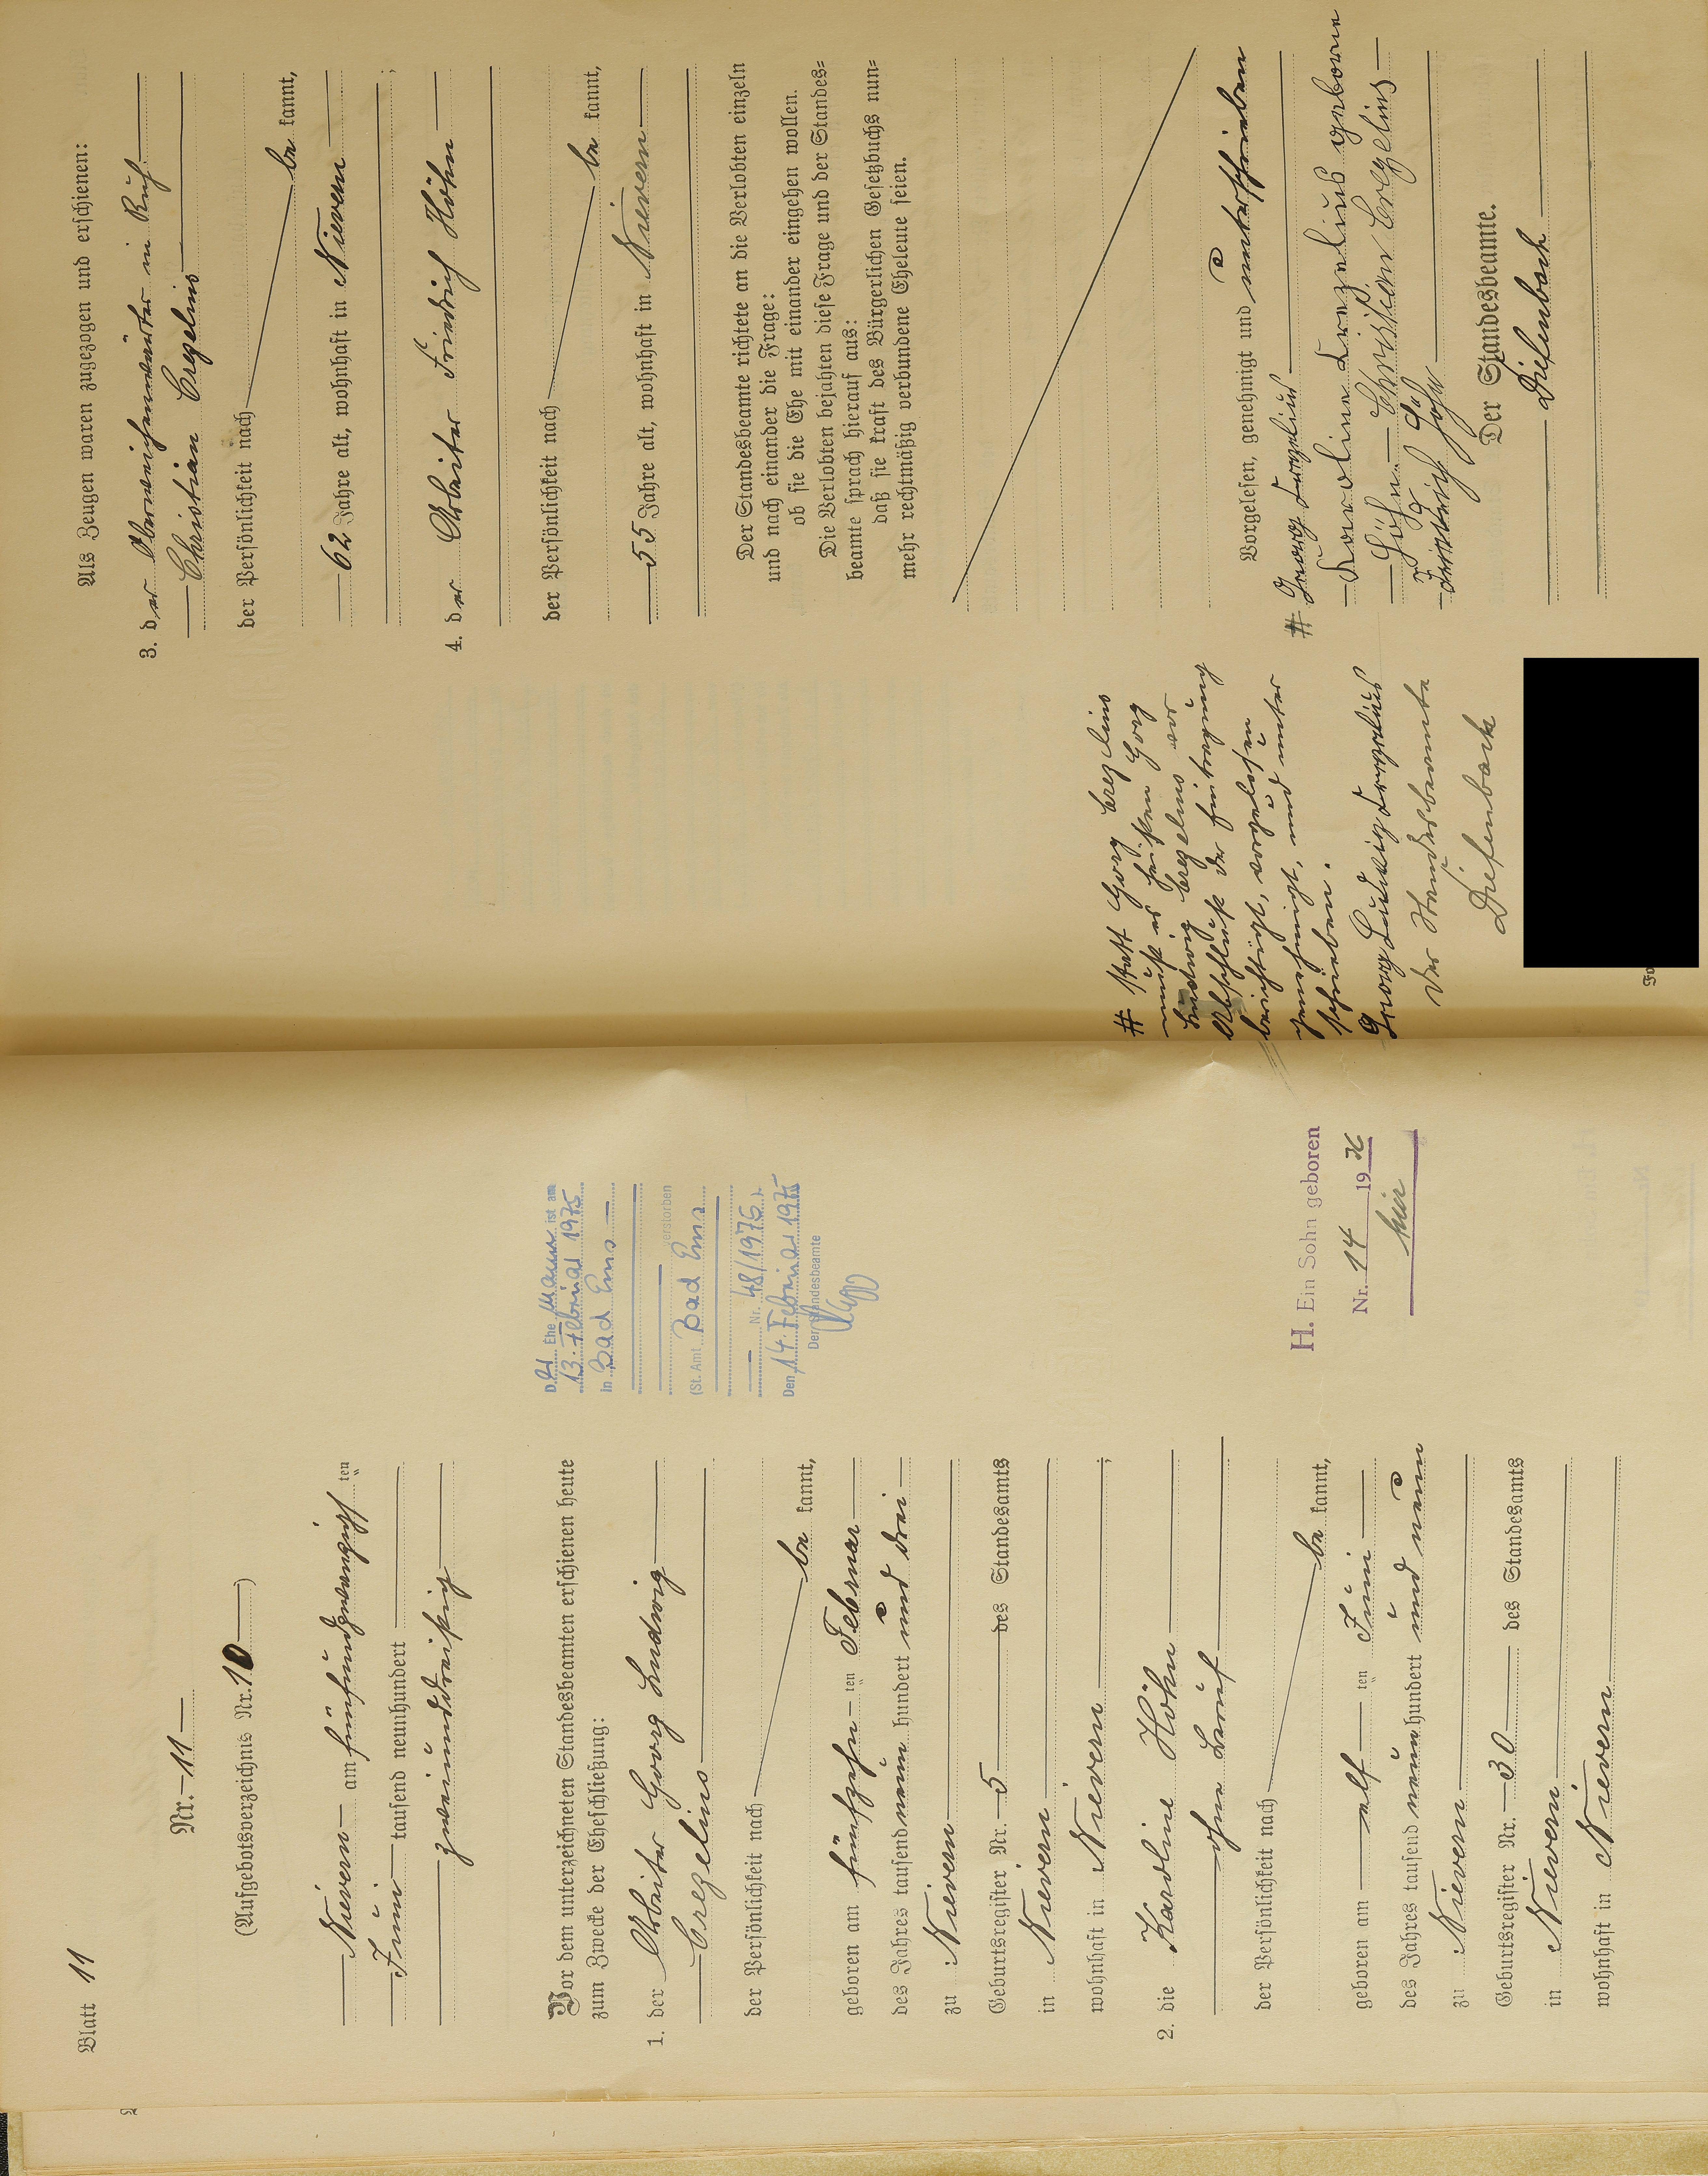 Blatt 11
Nr. 11
(Aufgebotsverzeichnis Nr. 10)
Nievern am fünfundzwanzigsten
Juni tausend neunhundert
zweiunddreißig
Vor dem unterzeichneten Standesbeamten erschienen heute
zum Zwecke der Eheschließung:
1. der Arbeiter Georg Ludwig
Crezelius
der Persönlichkeit nach
be kannt,
geboren am fünfzehn ten Februar
des Jahres tausend neun hundert und drei
zu Nievern
Geburtsregister Nr. 5 des Standesamts
in Nievern
wohnhaft in Nievern ;
2. die Karoline Höhn
ohne Beruf
der Persönlichkeit nach
be kannt,
geboren am elf ten Juni
des Jahres tausend neun hundert und neun
zu Nievern
Geburtsregister Nr. 30 des Standesamts
in Nievern
wohnhaft in Nievern
Der Ehe Mann ist am
13. Februar 1975
in Bad Ems
verstorben
(St. Amt Bad Ems
Nr. 48/1975).
Den 14. Februar 1975
Der Standesbeamte
H. Ein Sohn geboren
Nr. 14 19
hier
Als Zeugen waren zugezogen und erschienen:
3. der Oberweichenwärter in Ruh.
Christian Crezelius
der Persönlichkeit nach
be kannt,
62 Jahre alt, wohnhaft in Nievern
;
4. der Arbeiter Friedrich Höhn
der Persönlichkeit nach
be kannt,
55 Jahre alt, wohnhaft in Nievern
Der Standesbeamte richtete an die Verlobten einzeln
und nach einander die Frage:
ob sie die Ehe mit einander eingehen wollen.
Die Verlobten bejahten diese Frage und der Standes=
beamte sprach hierauf aus:
daß sie kraft des Bürgerlichen Gesetzbuchs nun=
mehr rechtmäßig verbundene Eheleute seien.
Vorgelesen, genehmigt und unterschrieben
# Georg Crezelius
Karoline Crezelius geborene
Höhn Christian Crezelius
Friedrich Höhn
Der Standesbeamte.
Diefenbach
# Statt Georg Crezelius
muß es heißen Georg
Ludwig Crezelius vor
Abschluß der Eintragung
berichtigt, vorgelesen
genehmigt, und unter
schrieben.
Georg Ludwig Crezelius
Der Standesbeamte
Diefenbach
Fo